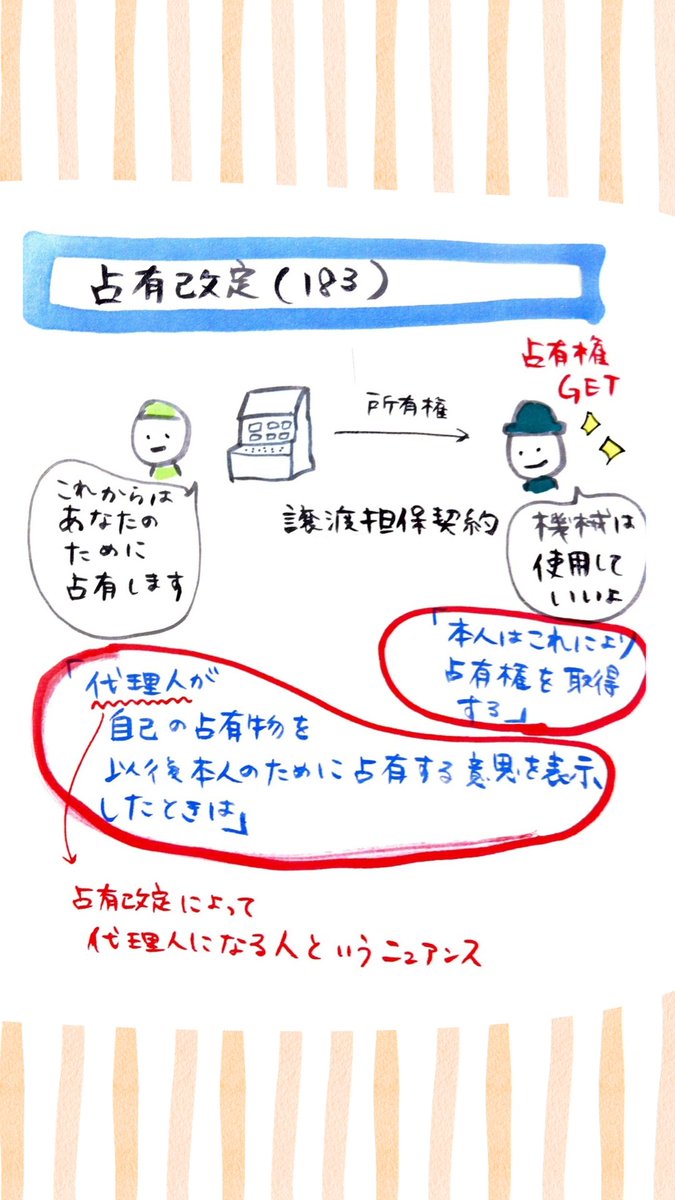 占有改定(183)
占有権
GET
所有権
これからは
あなたの
ために
占有します
譲渡担保契約
機械は
使用して
いいよ
「本人はこれにより
占有権を取得
する」
「代理人が
自己の占有物を
以後本人のために占有する意思を表示
したときは」
占有改定によって
代理人になる人というニュアンス